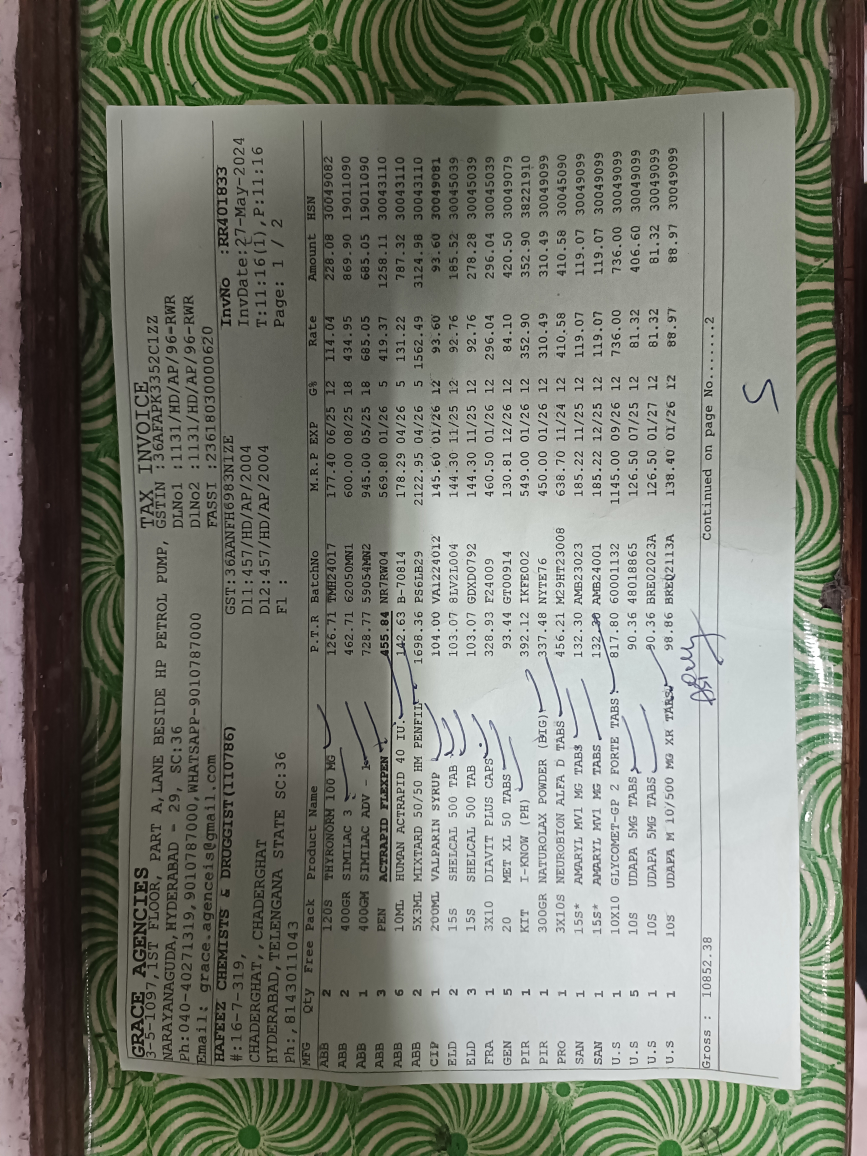 GRACE AGENCIES
TAX INVOICE
3-5-1097,1ST FLOOR, PART A,LANE BESIDE HP PETROL PUMP, GSTIN :36AFAPK3352C1ZZ
NARAYANAGUDA,HYDERABAD - 29, SC:36 DLNo1 :1131/HD/AP/96-RWR
Ph:040-40271319,9010787000,WHATSAPP-9010787000 DlNo2 :1131/HD/AP/96-RWR
Email: grace.agenceis@gmail.com FASSI :23618030000620
HAFEEZ CHEMISTS & DRUGGIST(110786) GST:36AANFH6983N1ZE InvNo :RR401833
#:16-7-319, D11:457/HD/AP/2004 InvDate:27-May-2024
CHADERGHAT,,CHADERGHAT D12:457/HD/AP/2004 T:11:16(1),P:11:16
HYDERABAD,TELENGANA STATE SC:36 Fl : Page: 1 / 2
Ph:,8143011043
MFG Qty Free Pack Product Name P.T.R BatchNo M.R.P EXP G% Rate Amount HSN
ABB 2 120S THYRONORM 100 MG 126.71 TMH24017 177.40 06/25 12 114.04 228.08 30049082
ABB 2 400GR SIMILAC 3 462.71 62050MN1 600.00 08/25 18 434.95 869.90 19011090
ABB 1 400GM SIMILAC ADV - 728.77 59054MN2 945.00 05/25 18 685.05 685.05 19011090
ABB 3 PEN ACTRAPID FLEXPEN 455.84 NR7RW04 569.80 01/26 5 419.37 1258.11 30043110
ABB 6 10ML HUMAN ACTRAPID 40 IU. 142.63 B-70814 178.29 04/26 5 131.22 787.32 30043110
ABB 2 5X3ML MIXTARD 50/50 HM PENFIL 1698.36 PS6LB29 2122.95 04/26 5 1562.49 3124.98 30043110
CIP 1 200ML VALPARIN SYRUP 104.00 VA1224012 145.60 01/26 12 93.60 93.60 30049081
ELD 2 15S SHELCAL 500 TAB 103.07 8LV2L004 144.30 11/25 12 92.76 185.52 30045039
ELD 3 15S SHELCAL 500 TAB 103.07 GDXD0792 144.30 11/25 12 92.76 278.28 30045039
FRA 1 3X10 DIAVIT PLUS CAPS 328.93 F24009 460.50 01/26 12 296.04 296.04 30045039
GEN 5 20 MET XL 50 TABS 93.44 GT00914 130.81 12/26 12 84.10 420.50 30049079
PIR 1 KIT I-KNOW (PH) 392.12 IKFE002 549.00 01/26 12 352.90 352.90 38221910
PIR 1 300GR NATUROLAX POWDER (BIG) 337.48 NYTE76 450.00 01/26 12 310.49 310.49 30049099
PRO 1 3X10S NEUROBION ALFA D TABS 456.21 M29HT23008 638.70 11/24 12 410.58 410.58 30045090
SAN 1 15S* AMARYL MV1 MG TABS 132.30 AMB23023 185.22 11/25 12 119.07 119.07 30049099
SAN 1 15S* AMARYL MV1 MG TABS 132.30 AMB24001 185.22 12/25 12 119.07 119.07 30049099
U.S 1 10X10 GLYCOMET-GP 2 FORTE TABS 817.80 60001132 1145.00 09/26 12 736.00 736.00 30049099
U.S 5 10S UDAPA 5MG TABS 90.36 48018865 126.50 07/25 12 81.32 406.60 30049099
U.S 1 10S UDAPA 5MG TABS 90.36 BRE02023A 126.50 01/27 12 81.32 81.32 30049099
U.S 1 10S UDAPA M 10/500 MG XR TABS 98.86 BRE02113A 138.40 01/26 12 88.97 88.97 30049099
Gross : 10852.38 Continued on page No.......2
S